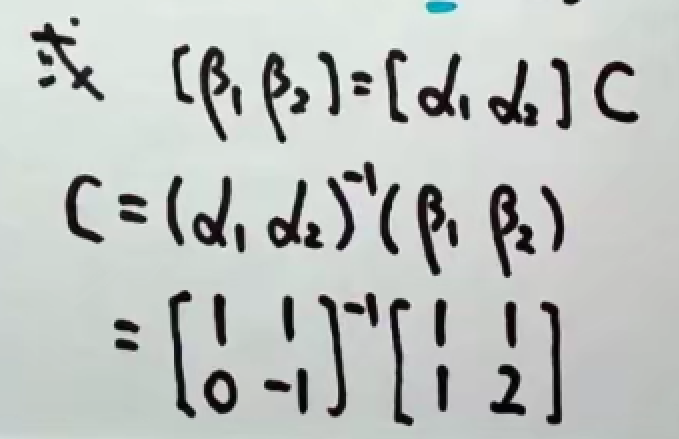 求 [β₁ β₂]=[α₁ α₂] C
C=(α₁ α₂)⁻¹(β₁ β₂)
=[1 1
0 -1]⁻¹[1 1
1 2]